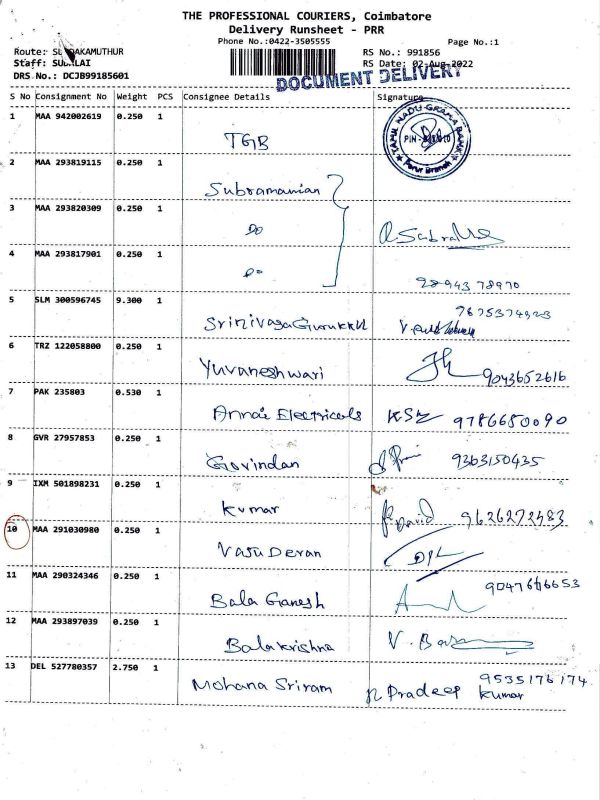 THE PROFESSIONAL COURIERS, Coimbatore
Delivery Runsheet - PRR
Phone No.:0422-3505555
Page No.:1
Route: KAMUTHUR
RS No.: 991856
Staff:
RS Date: 02-Aug-2022
DRS No.: DCJB99185601
DOCUMENT DELIVERY
S No Consignment No Weight PCS Consignee Details Signature
1 MAA 942002619 0.250 1 TGB
TAMIL NADU GRAMA BANK
PIN
Perur Branch
2 MAA 293819115 0.250 1 Subramanian
3 MAA 293820309 0.250 1 Do
4 MAA 293817901 0.250 1 Do 98943 78970
5 SLM 300596745 9.300 1 Srinivasa Gurukkul
6 TRZ 122058800 0.250 1 Yuvaneshwari 9043652616
7 PAK 235803 0.530 1 Annai Electricals KSM 9786680090
8 GVR 27957853 0.250 1 Govindan 9363150435
9 IXM 501898231 0.250 1 Kumar David 9626272483
10 MAA 291030980 0.250 1 Vasudevan
11 MAA 290324346 0.250 1 Bala Ganesh
12 MAA 293897039 0.250 1 Balakrishna
13 DEL 527780357 2.750 1 Mohana Sriram Pradeep Kumar 9535176174